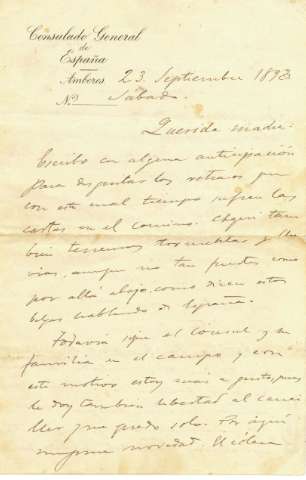 Consulado General
de
España
Amberes 23 Septiembre 1893
Nº Sábado.
Querida madre:
Escribo con alguna anticipación
para los retrasos que
con este mal tiempo sufren las
cartas en el camino. Aquí tam
bién tenemos tormentas y llu
vias, aunque no tan fuertes como
por allá abajo como dicen estos
belgas hablando de España.
Todavía sigue el Cónsul y su
familia en el campo y con
este motivo estoy más a gusto, pues
le doy también libertad al canci
ller y me quedo solo. Por aquí
ninguna novedad.